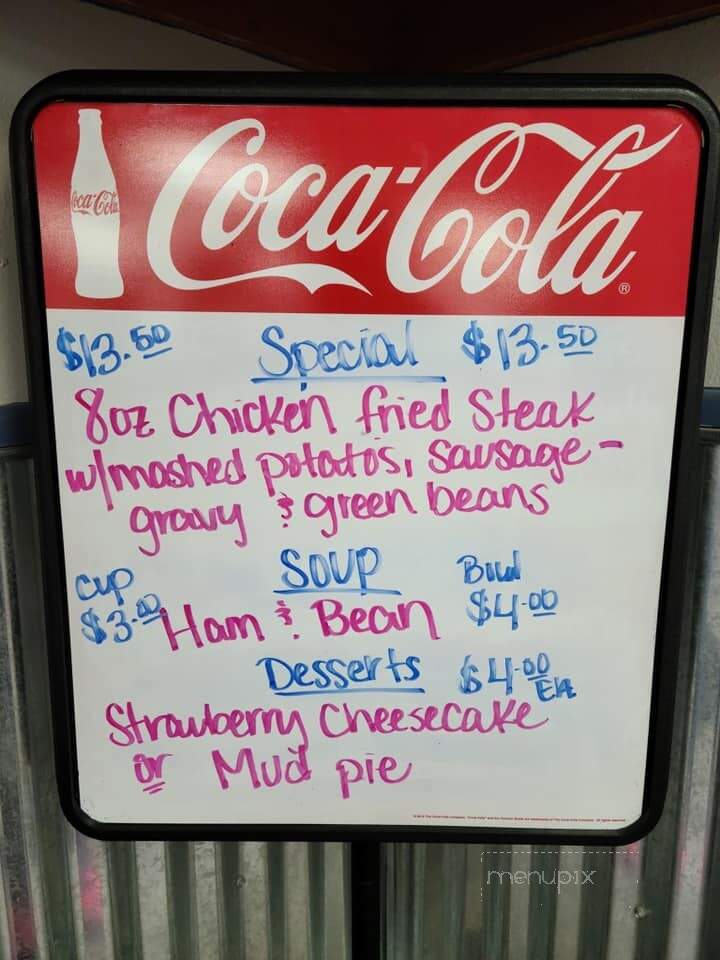 Coca-Cola
Coca-Cola®
$13.50 Special $13.50
8oz Chicken fried Steak
w/mashed potatos, sausage-
gravy & green beans
Cup Soup Bowl
$3.00 Ham & Bean $4.00
Desserts $4.00 EA
Strawberry Cheesecake
or Mud pie
menupix